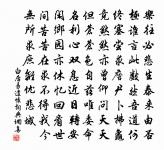 樂往必悲生泰來由否
極誰言此數然吾道何
終塞嘗求詹尹卜拂龜
竟默默亦曾仰問天天
但蒼蒼色自茲唯委命
名利心雙息近日轉安
閑鄉園亦休憶回看世
間苦苦在求不得我今
無所求庶離憂悲域
白居易遣懷詞典網